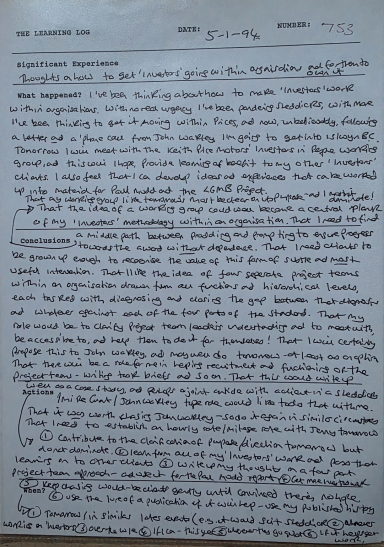 THE LEARNING LOG DATE: 5-1-94 NUMBER: 753
Significant Experience
Thoughts on how to get 'Investors' going within organisations and for them to own it
What happened? I've been thinking about how to make 'Investors' work
within organisations. With no real urgency I've been pondering Sheddicks, with more
I've been thinking to get it moving within Prices, and now, unbelievably, following
a letter and a 'phone call from John Warkley I'm going to get into Islwyn BC.
Tomorrow I will meet with the Keith Price Motors' Investors in People working
group, and this will I hope, provide learning of benefit to my other 'Investors'
clients. I also feel that I can develop ideas and experiences that can be worked
up into material for Paul Mudd and the LGMB Project.
That any working group like tomorrow's must be clear on up and I must not dominate!
That the idea of a working group could well become a central plank
of my 'Investors' methodology within an organisation. That I need to find
Conclusions
a middle path between prodding and prompting to ensure progress
towards the award without dependence. That I need clients to
be grown up enough to recognise the value of this form of subtle and most
useful intervention. That I like the idea of four seperate project teams
within an organisation drawn from all functions and hierarchical levels,
each tasked with diagnosing and closing the gap between that diagnosis
and whatever against each of the four parts of the Standard. That my
role would be to clarify project team leaders understanding and to meet with,
be accessible to, and help them to do it for themselves! That I will certainly
propose this to John Warkley, and may well do tomorrow - at least as an option
That there will be a role for me in helping recruitment and functioning of the
project teams - writing task briefs and so on. That this would write up
well as a case study, and perhaps a joint article with a client in a Sheddicks
Actions
/Mike Grant/John Warkley type role would like to do that with me.
That it was worth chasing John Warkley - so do it again in similar circumstances
That I need to establish an hourly rate/mileage role with Jenny tomorrow
① Contribute to the clarification of purpose/direction tomorrow but
do not dominate. ② Learn from all of my 'Investors' work and pass that
learning on to other clients ③ Write up my thoughts on a four part
project team approach - and use it for the Paul Mudd report ④
⑤ Keep chasing would-be clients gently until convinced there's no hope
When? ⑥ use the lure of a publication if it will help - use my published history
① Tomorrow/in similar later events (e.g. it would suit Sheddicks) ② whenever
working on 'Investors' ③ over the w/e ④ if I can - this year ⑤ when they go quiet ⑥ if it helps per
work.